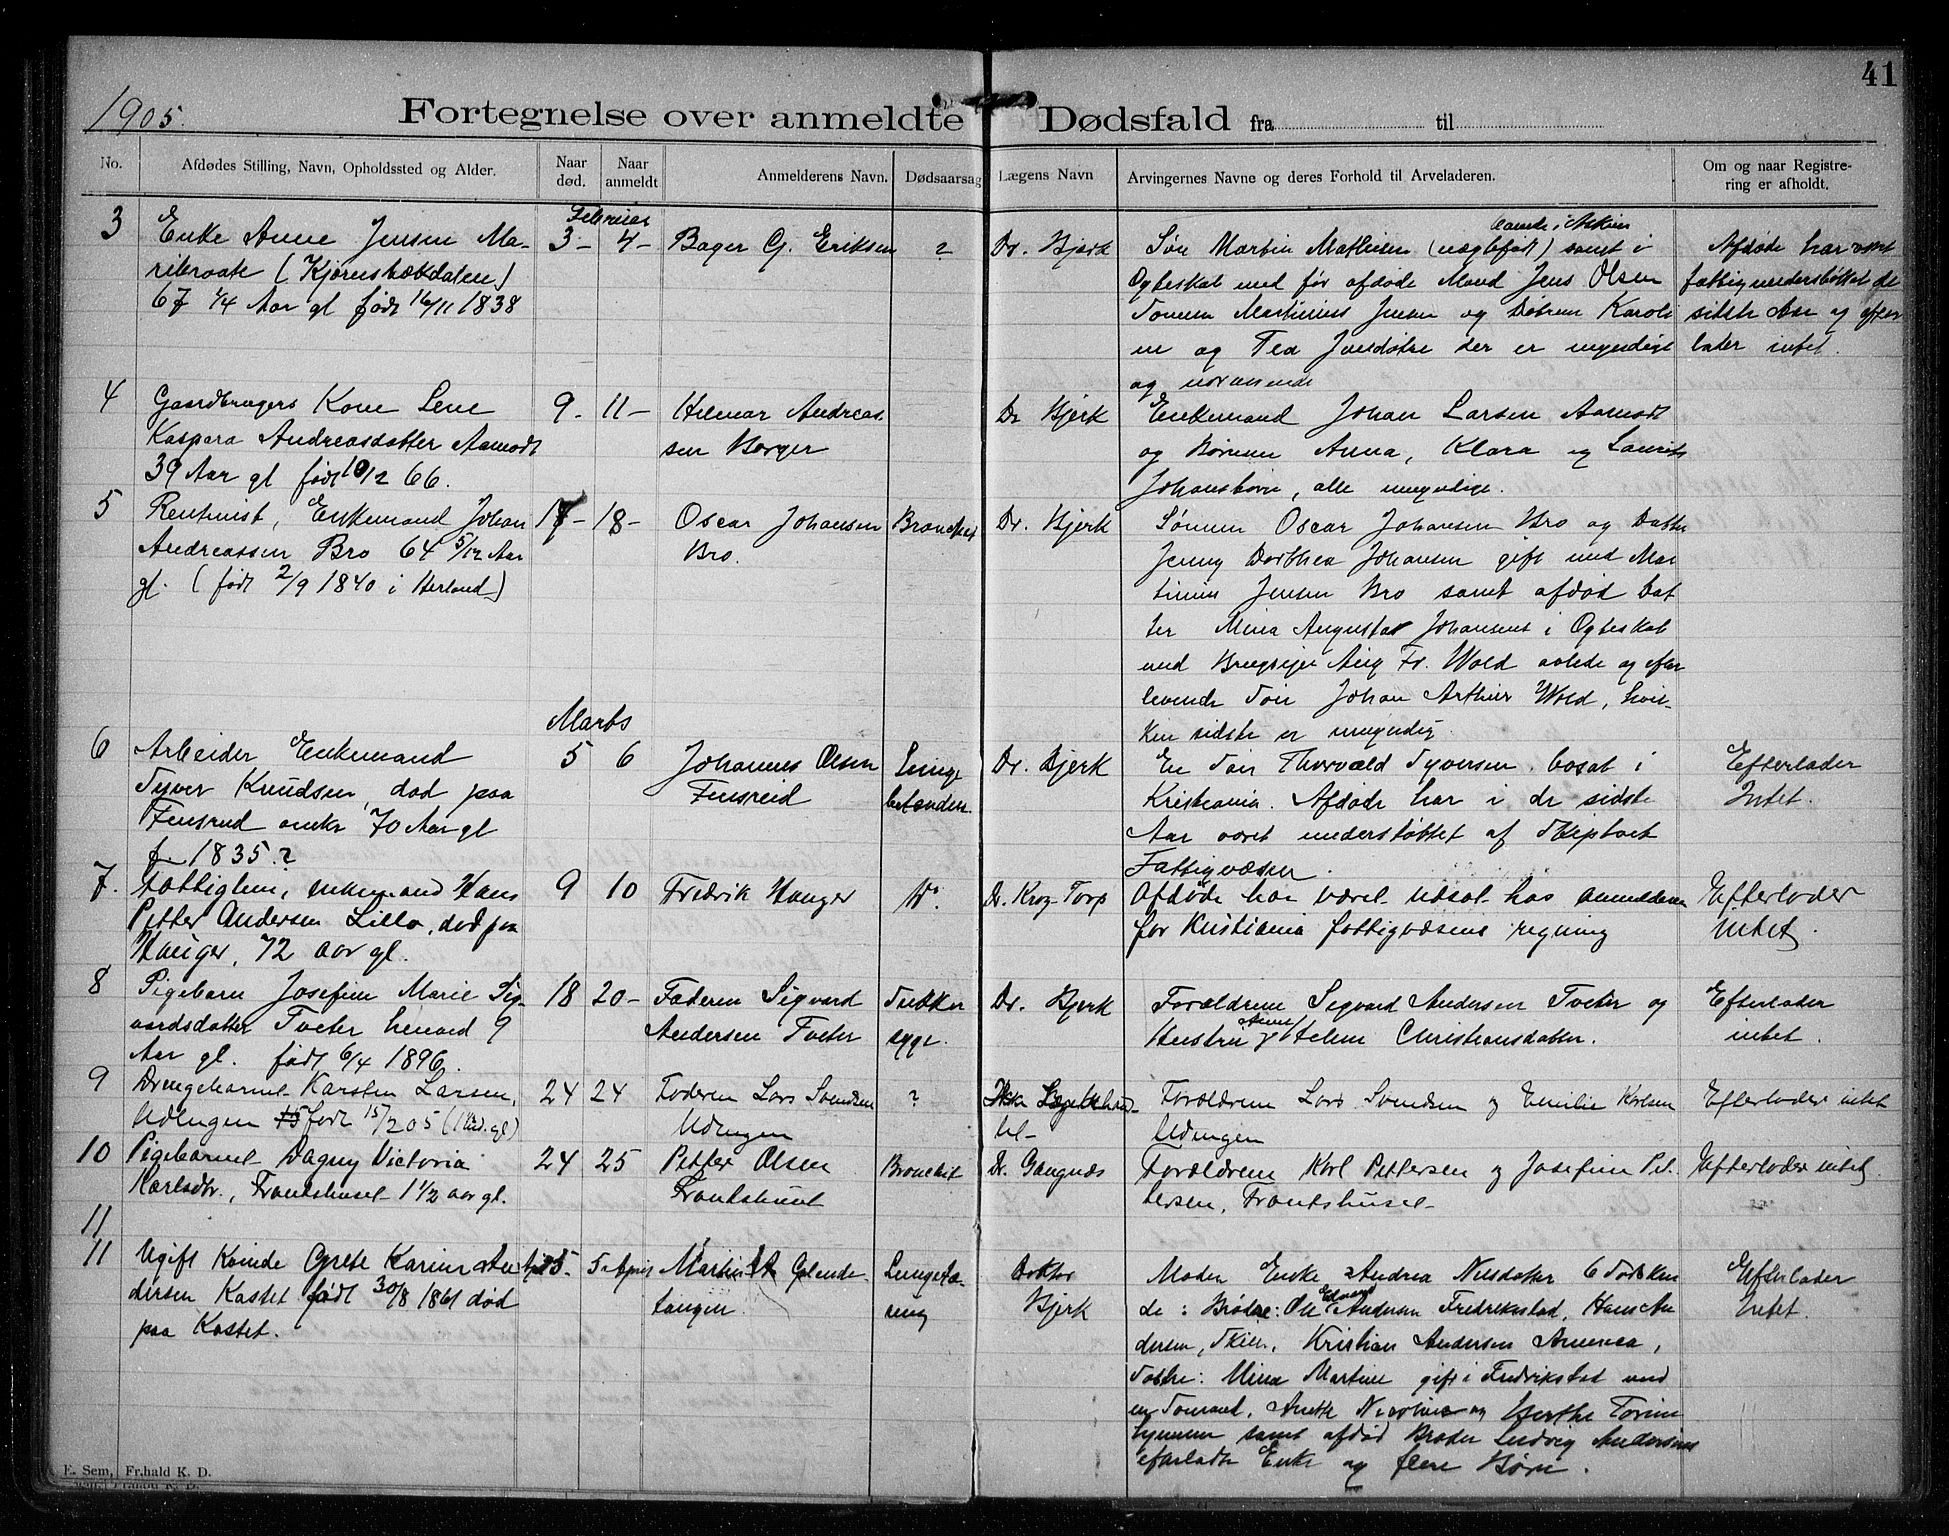 41
1905.
Fortegnelse over anmeldte Dødsfald fra til
No.
Afdødes Stilling, Navn, Opholdssted og Alder.
Naar død.
Naar anmeldt
Anmelderens Navn.
Dødsaarsag
Lægens Navn
Arvingernes Navne og deres Forhold til Arveladeren.
Om og naar Registre-
ring er afholdt.
Februar
3
Enke Anne Jensen Ma-
(Kjørnsbækdalen)
67 1/4 Aar gl født 16/11 1838
3 - 4 -
Bager G. Eriksen
?
Dr. Bjerk
Søn Martin Mathisen (uægtefød) samt i
Egteskab med før afdøde Mand Jens Olsen
Sønnen Martinius Jensen og Døtrene Karoli
ne og Tea Jensdøtre der er myndige
og nærværende
Afdøde har været
fattigunderstøttet de
sidste Aar og efter
lader intet.
4
Gaardbrugers Kone Lene
Kaspara Andreasdatter Aamodt
39 Aar gl født 10/2 66.
9 - 11 -
Hilmar Andreas-
sen Borger
Dr Bjerk
Enkemand Johan Larsen Aamodt
og Børnene Anna, Klara og Laurits
Johansbørn, alle umyndige.
5
Rentenist, Enkemand Johan
Andreassen Bro 64 5/12 Aar
gl. (født 2/9 1840 i Herland)
17 - 18 -
Oscar Johansen
Bro.
Dr. Bjerk
Sønnen Oscar Johansen Bro og Datter
Jenny Dorthea Johansen gift med Mar
tinius Jensen Bro samt afdød Dat
ter Mina Augusta Johansens i Egteskab
med Brugseier Aug Fr. Wold avlede og efter
levende Søn Johan Arthur Wold, hvil-
ken sidste er umyndig.
Marts
6
Arbeider Enkemand
Syver Knudsen, død paa
Fensrud omkr 70 Aar gl
f 1835.?
5 6
Johannes Olsen
Fensrud
Lunge
betændelse
Dr. Bjerk
En Søn Thorvald Syversen, bosat i
Kristiania. Afdøde har i de sidste
Aar været understøttet af Skiptvet
Fattigvæsen.
Efterlader
Intet.
7.
Fattiglem, enkemand Hans
Petter Andersen Lillo, død paa
Hauger, 72 aar gl.
9 10
Fredrik Hauger
Dr. Krog-Torp
Afdøde har været udsat hos anmelderen
for Kristiania fattigvæsens regning
Efterlader
intet.
8
Pigebarn Josefine Marie Sig-
vardsdatter Tveter henved 9
Aar gl. født 6/4 1896.
18 20 -
Faderen Sigvard
Andersen Tveter
Dr. Bjerk
Forældrene Sigvard Andersen Tveter og
Hustru Anne Helene Christiansdatter.
Efterlader
intet.
9
Drengebarnet Karsten Larsen,
Udengen født 15/2 05
24 24
Faderen Lars Svendsen
Udengen
?
Forældrene Lars Svendsen og Emilie Karlsen
Udengen
Efterlader intet
10
Pigebarnet Dagny Victoria
Karlsdtr., Frantshuset 1 1/2 aar gl.
24 25
Petter Olsen
Frantshuset
Bronchit
Dr. Gangnæs
Forældrene Karl Pettersen og Josefine Pet-
tersen, Frantshuset
Efterlader intet.
11
11
Ugift Kvinde Grete Karine An
dersen Kastet født 30/8 1861 død
paa Kastet.
5 April
Glende-
tangen.
Lungetæ-
ring
Doktor
Bjerk
Moder Enke Andrea Nilsdatter 6 Sødsken
de: Brødre: Ole Edvard Andersen Fredriksstad, Hans An
dersen, Skiln, Kristian Andersen Amerika,
Søstre: Mina Martine gift i Fredrikstad med
en Sømand, Anette Nicoline og
samt afdød Broder Ludvig Andersens
efterladte Enke og flere Børn.
Efterlader
Intet.
E. Sem, Fr.hald K. D.